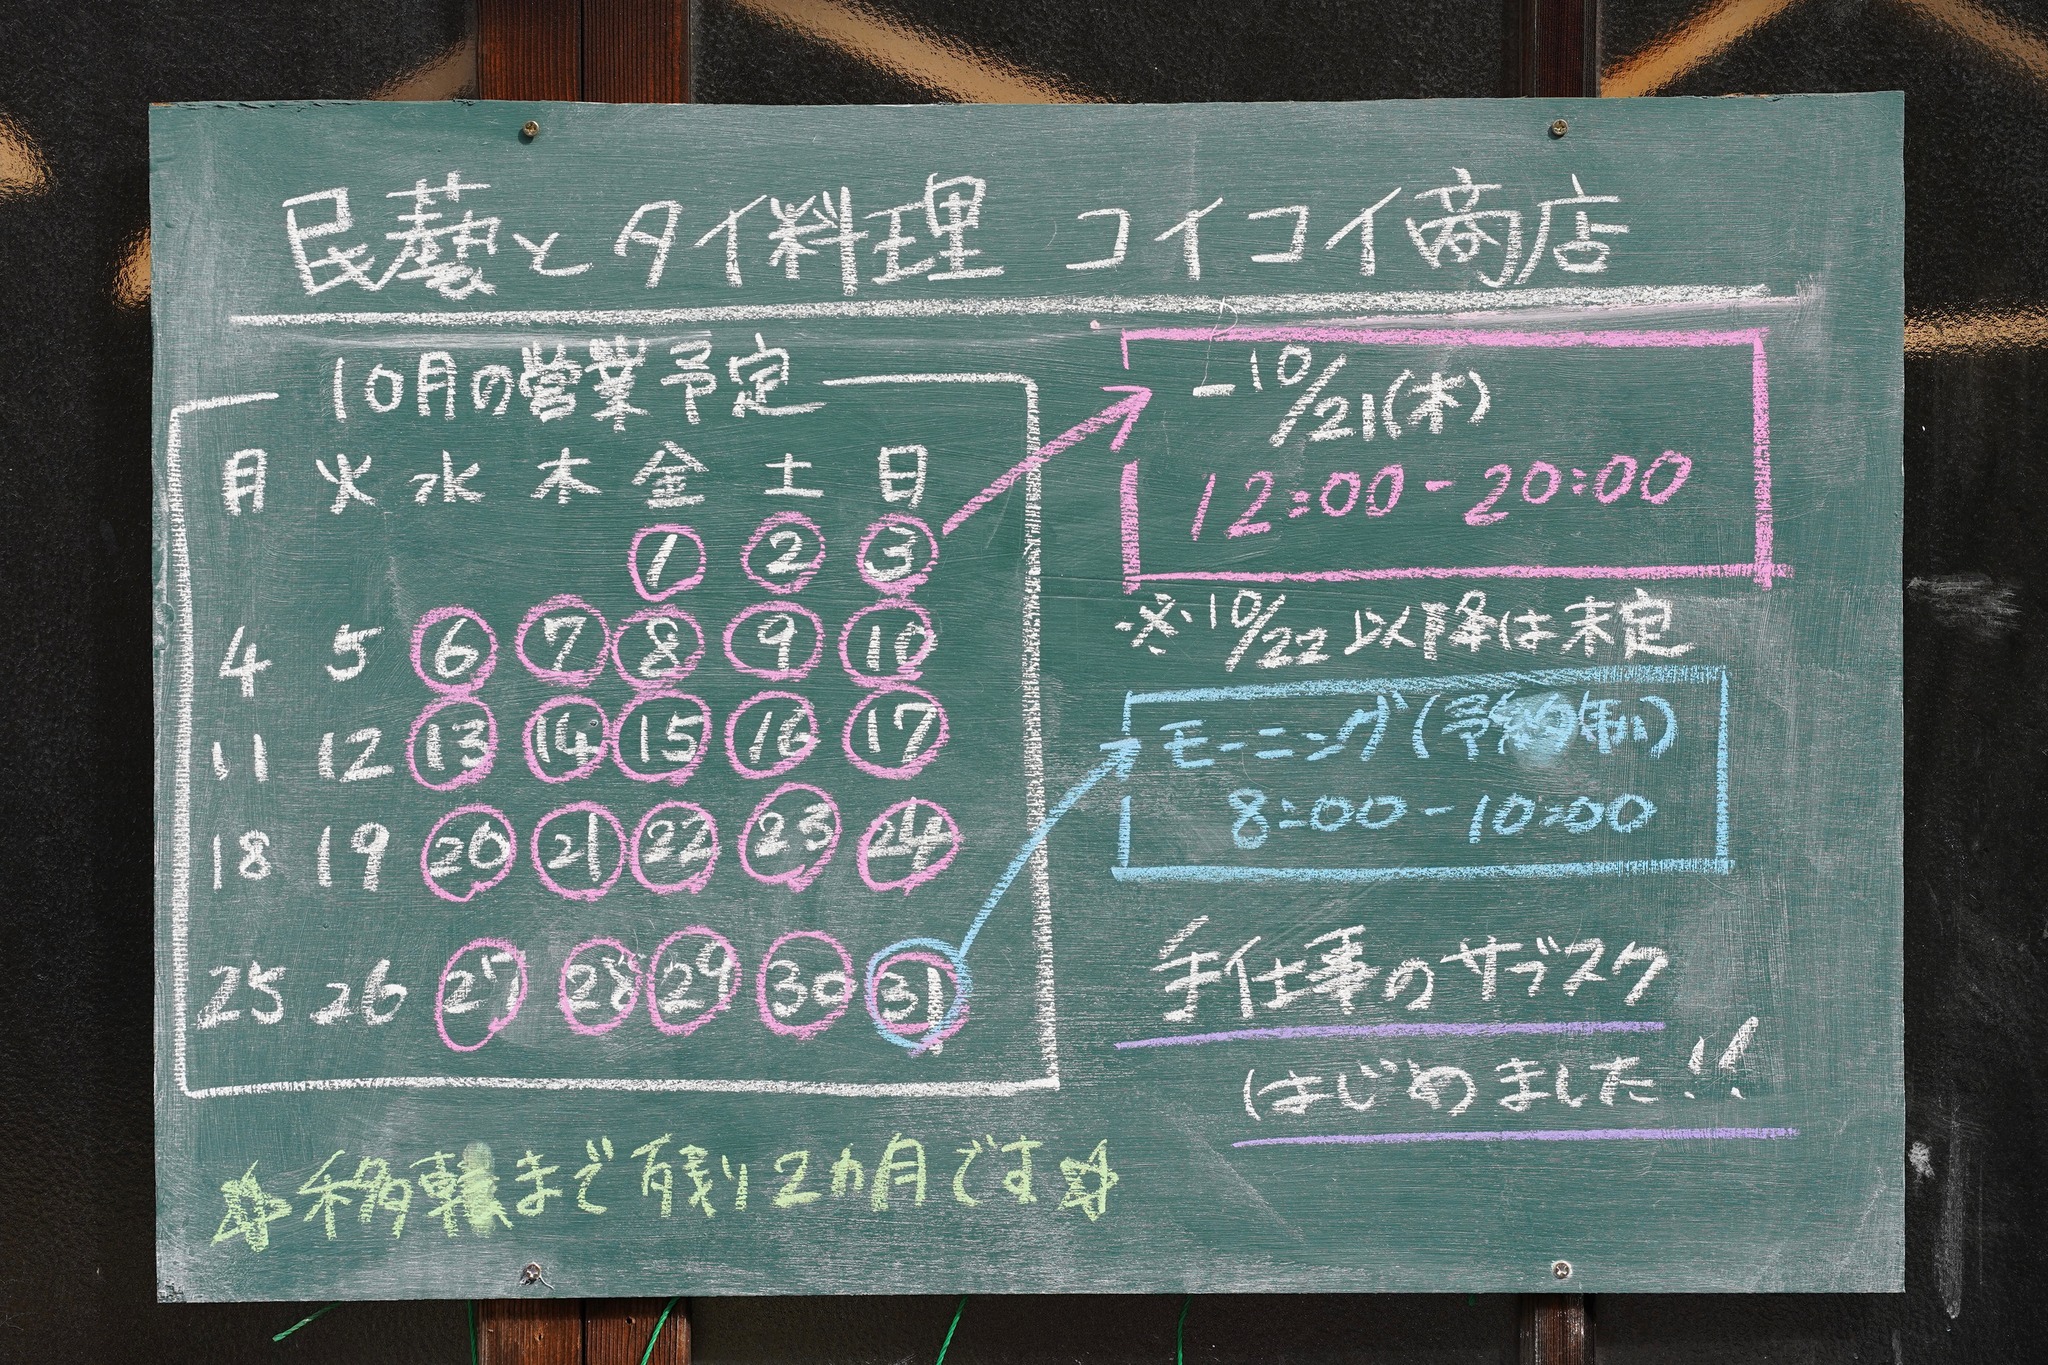 民藝とタイ料理 コイコイ商店
10月の営業予定
月 火 水 木 金 土 日
1 2 3
4 5 6 7 8 9 10
11 12 13 14 15 16 17
18 19 20 21 22 23 24
25 26 27 28 29 30 31
-10/21(木)
12:00-20:00
※10/22以降は未定
モーニング(予約制)
8:00-10:00
手仕事のサブスク
はじめました!!
☆移転まで残り2カ月です☆